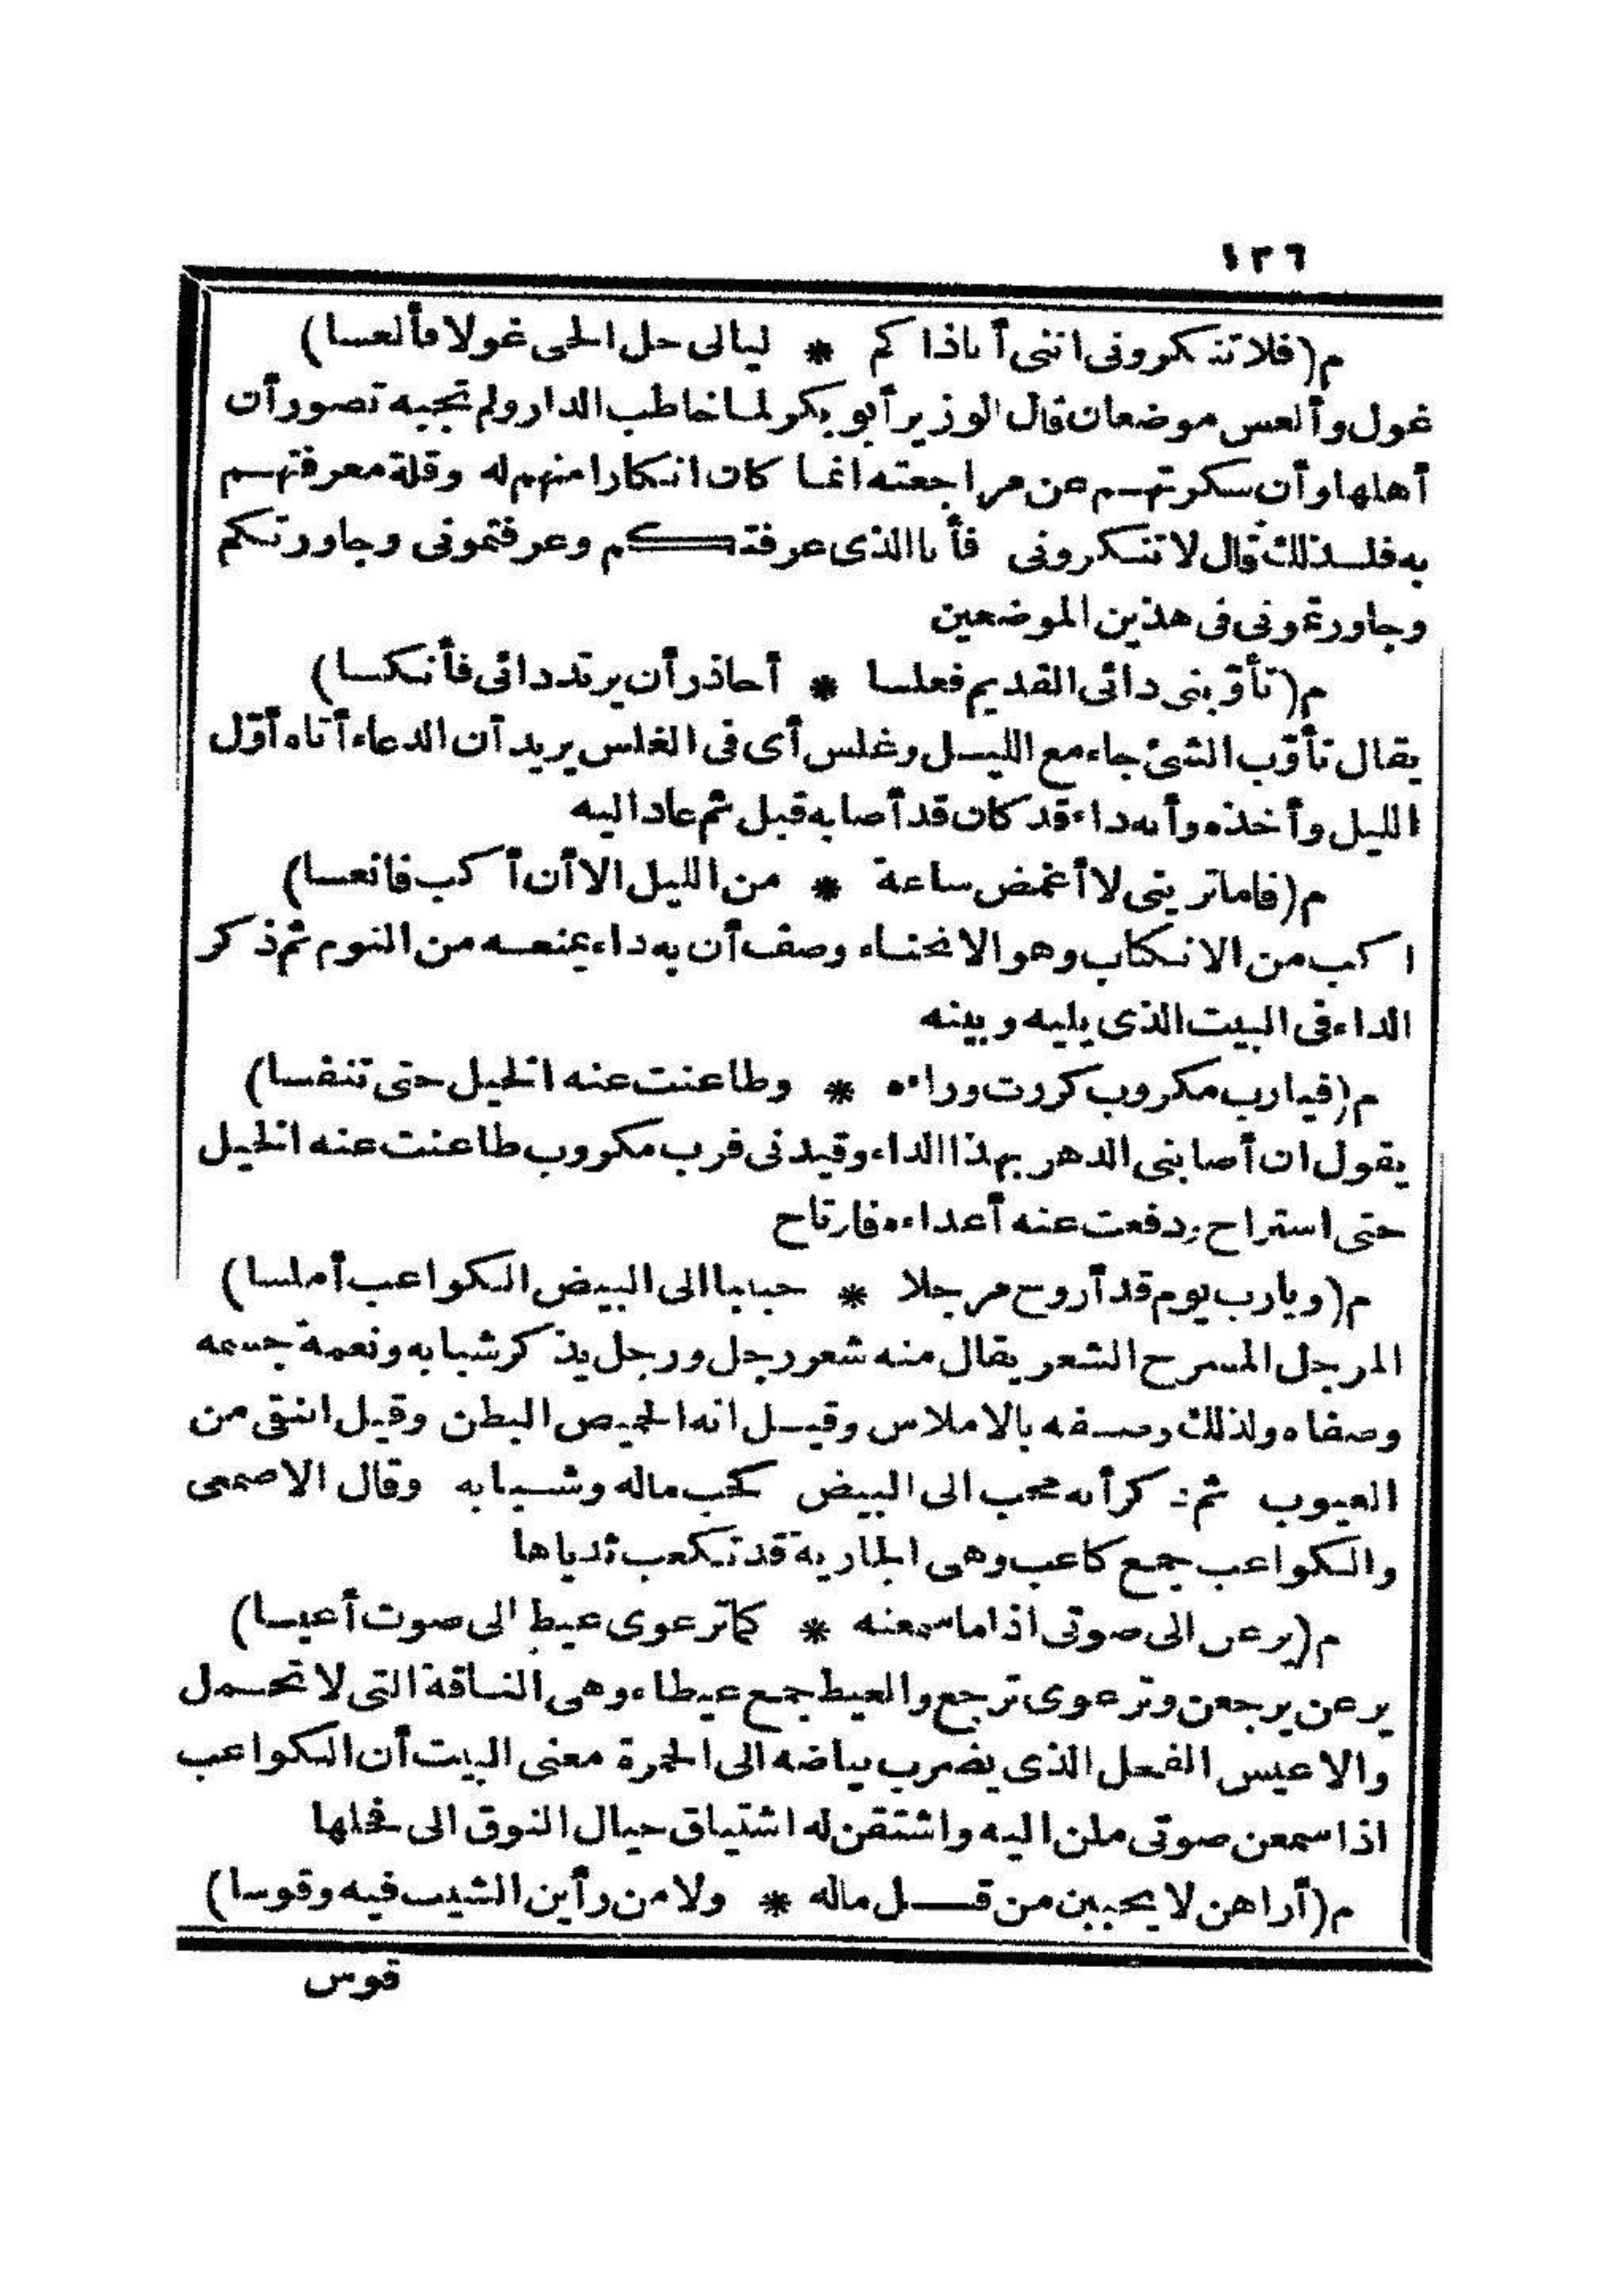 ١٢٦
م(فلا تنكروني انني أنا ذاكم * ليالي حل الحى غولا فألعسا)
غول وألعس موضعان قال الوزير أبو بكر لما خاطب الدار ولم تجبه تصور أن
أهلها وأن سكرتهم عن مراجعته انما كان انكارا منهم له وقلة معرفتهم
به فلذلك قال لا تنكروني فأنا الذى عرفتكم وعرفتمونى وجاورتكم
وجاورتمونى فى هذين الموضعين
م(تأوّبنى دائى القديم فعلسا * أحاذر أن يرتد دائى فأنكسا)
يقال تأوّب الشئ جاء مع الليل وغلس أى فى الغلس يريد أن الدعاء أتاه أوّل
الليل وأخذه وأنه داء قد كان قد أصابه قبل ثم عاد اليه
م(فاما ترينى لا أغمض ساعة * من الليل الا أن أكب فانعسا)
اكب من الانكتاب وهو الانحناء وصف أن به داء يمنعه من النوم ثم ذكر
الداء فى البيت الذى يليه وبينه
م(فيارب مكروب كررت وراءه * وطاعنت عنه الخيل حتى تنفسا)
يقول ان أصابنى الدهر بهذا الداء وقيدنى فرب مكروب طاعنت عنه الخيل
حتى استراح ودفعت عنه أعداءه فارتاح
م(ويارب يوم قد أروح مرجلا * حبيبا الى البيض الكواعب أملسا)
المرجل المسرح الشعر يقال منه شعر رجل ورجل يذكر شبابه ونعمة جسمه
وصفاه ولذلك وصفه بالاملاس وقيل انه الخميص البطن وقيل انتقى من
العيوب ثم ذكر أنه محب الى البيض كحب ماله وشبابه وقال الاصمعى
والكواعب جمع كاعب وهى الجارية قد تكعب ثدياها
م(يرعن الى صوتى اذا ما سمعنه * كما ترعوى عيط الى صوت أعيسا)
يرعن يرجعن وترعوى ترجع والعيط جمع عيطاء وهى الناقة التى لا تحمل
والاعيس الفحل الذى يضرب بياضه الى الحمرة معنى البيت أن الكواعب
اذا سمعن صوتى ملن اليه واشتقن له اشتياق حيال النوق الى فحلها
م(أراهن لا يحببن من قل ماله * ولا من رأين الشيب فيه وقوسا)
قوس